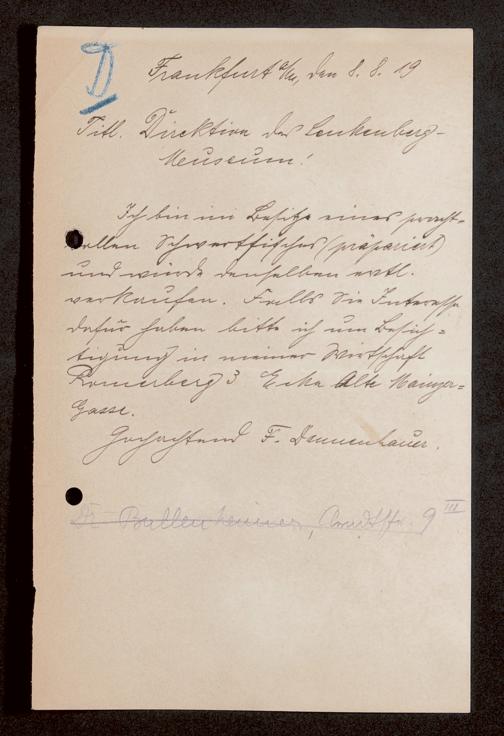 D
Frankfurt a/M, den 8. 8. 19
Titl. Direktion des Senkenberg-
Meuseum!
Ich bin im Besitze eines pracht-
vollen Schwertfisches (präpariert)
und würde denselben evtl.
verkaufen. Falls Sie Interesse
dafür haben bitte ich um Besich-
tigung in meiner Wirtschaft
Römerberg 3 Ecke Alte Mainzer-
Gasse.
Hochachtend F. Dannenhauer.
Dr. Arndtstr. 9 III